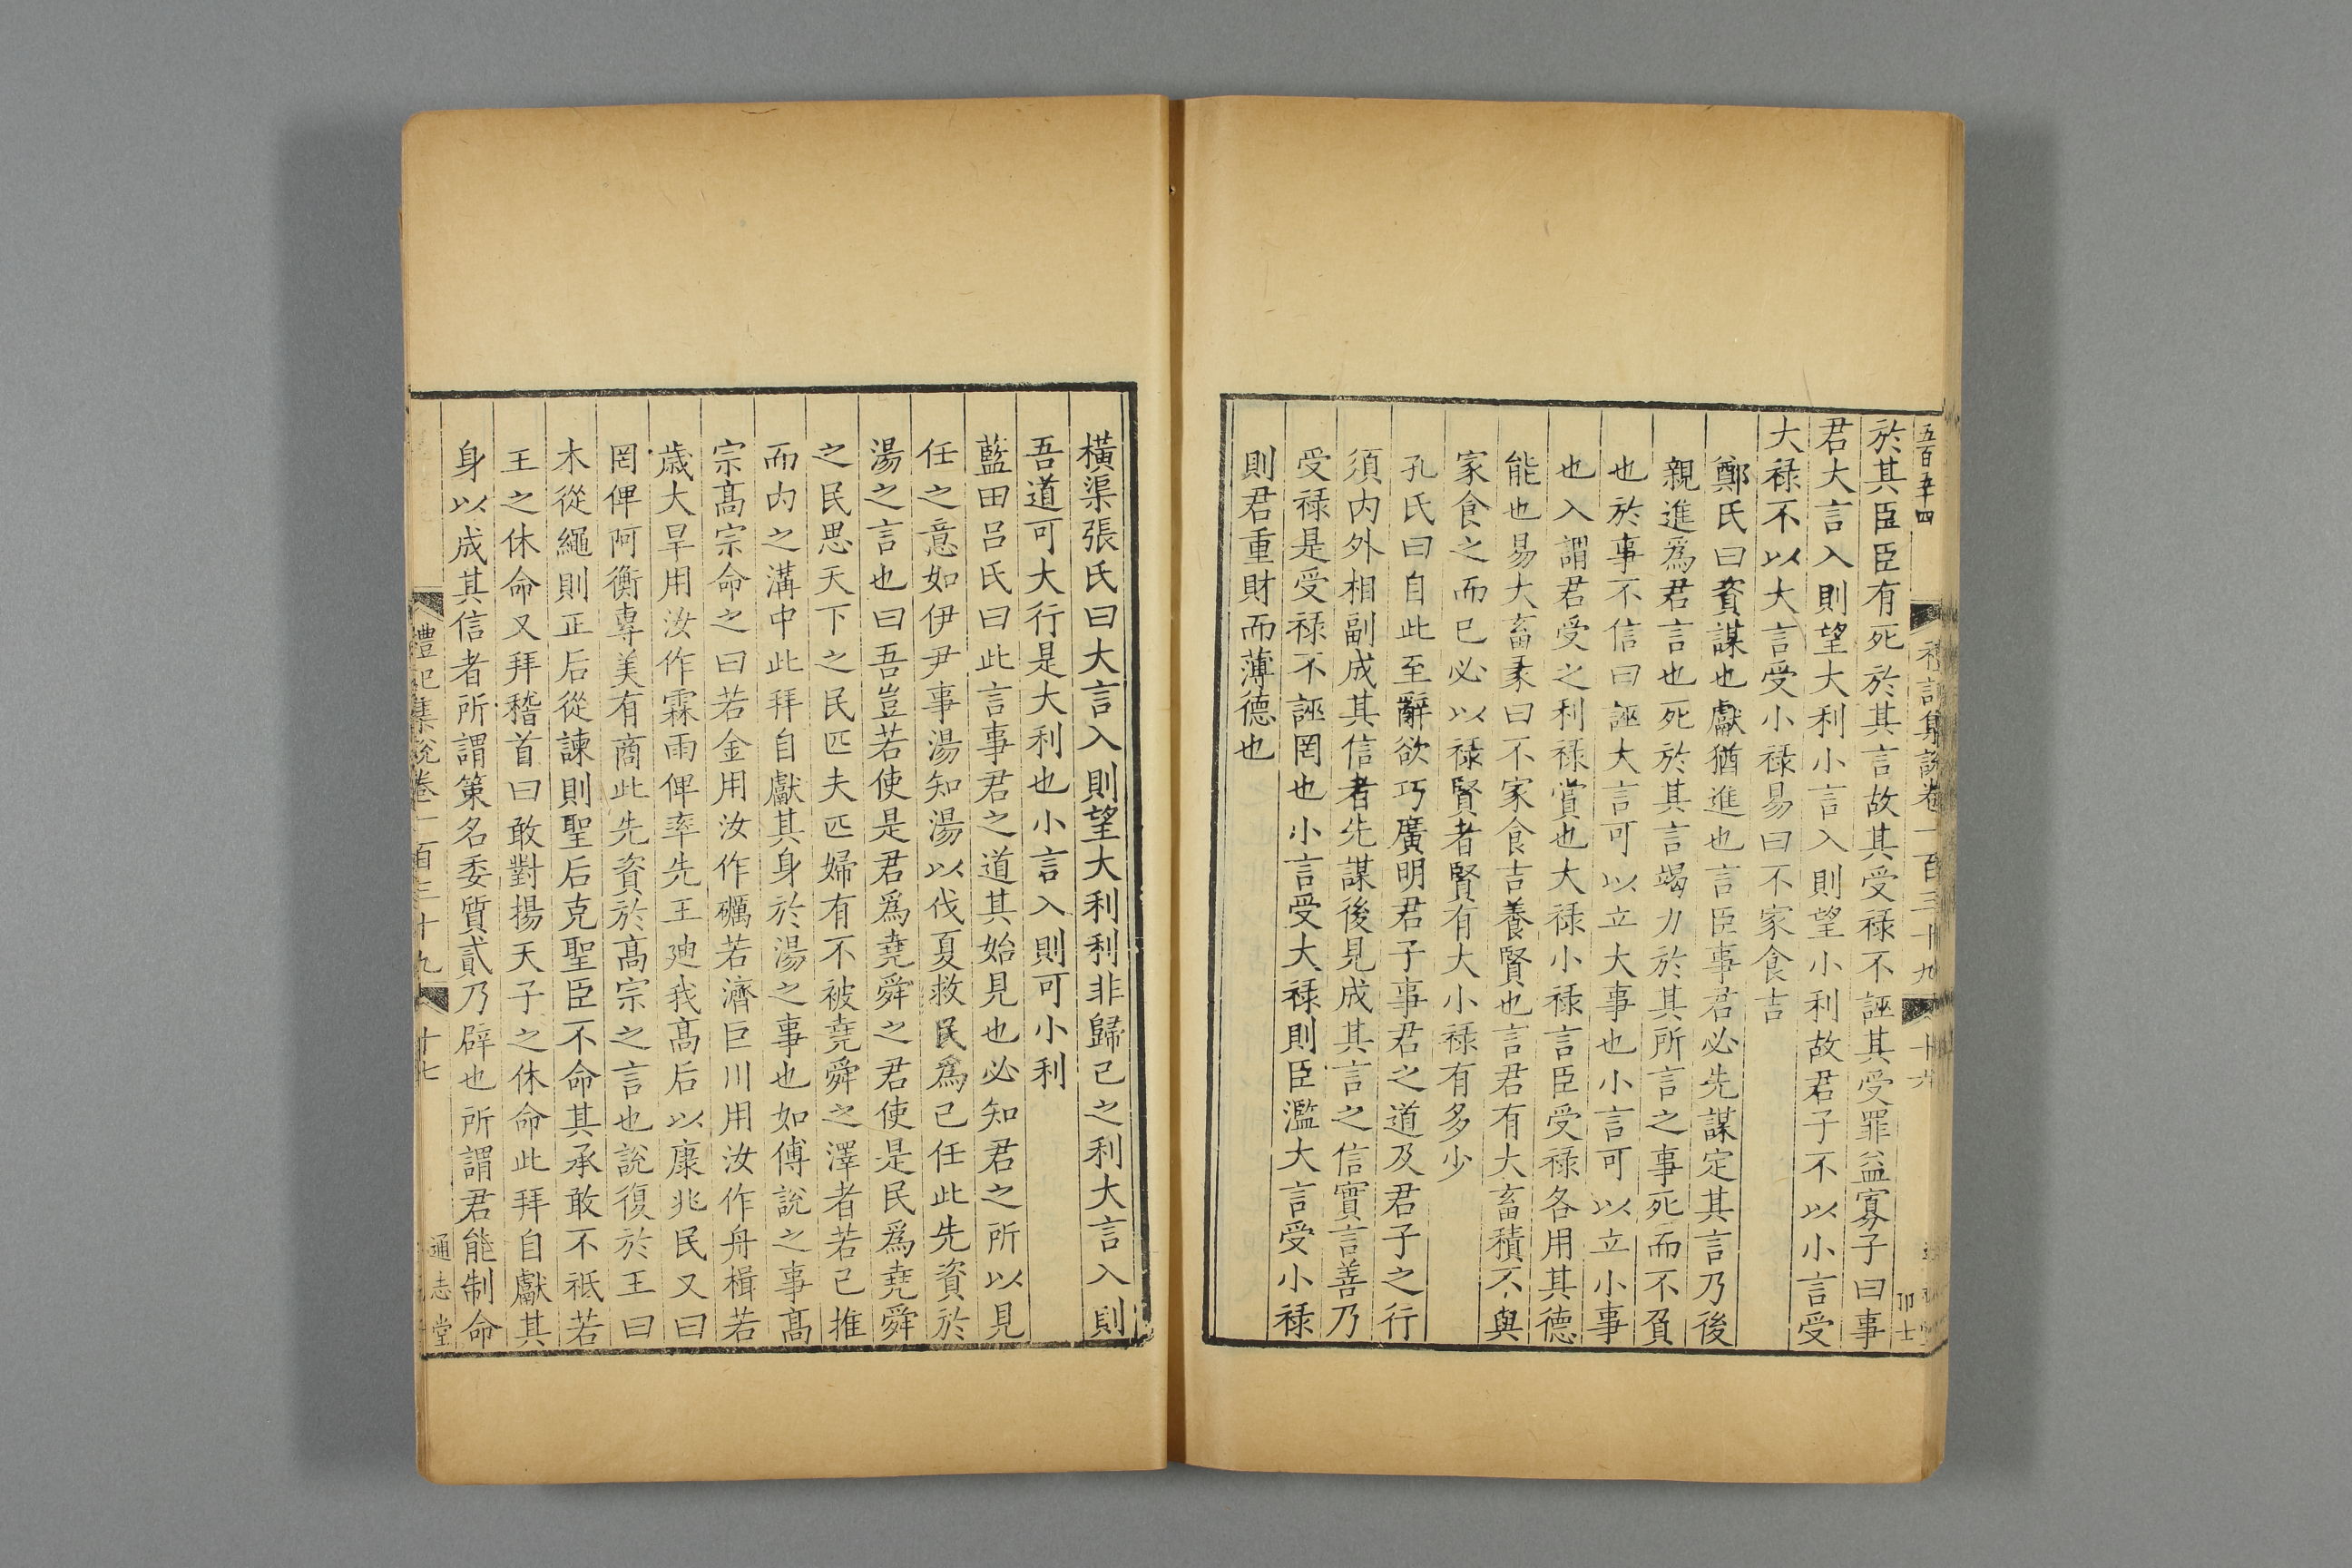 五百五十四 禮記集說卷一百三十九 十六
於其臣臣有死於其言故其受祿不誣其受罪益寡子曰事
君大言入則望大利小言入則望小利故君子不以小言受
大祿不以大言受小祿易曰不家食吉
鄭氏曰資謀也獻猶進也言臣事君必先謀定其言乃後
親進爲君言也死於其言竭力於其所言之事死而不負
也於事不信曰誣大言可以立大事也小言可以立小事
也入謂君受之利祿賞也大祿小祿言臣受祿各用其德
能也易大畜彖曰不家食吉養賢也言君有大畜積不與
家食之而已必以祿賢者賢有大小祿有多少
孔氏曰自此至辭欲巧廣明君子事君之道及君子之行
須內外相副成其信者先謀後見成其言之信實言善乃
受祿是受祿不誣罔也小言受大祿則臣濫大言受小祿
則君重財而薄德也
橫渠張氏曰大言入則望大利利非歸己之利大言入則
吾道可大行是大利也小言入則可小利
藍田呂氏曰此言事君之道其始見也必知君之所以見
任之意如伊尹事湯知湯以伐夏救民爲己任此先資於
湯之言也曰吾豈若使是君爲堯舜之君使是民爲堯舜
之民思天下之民匹夫匹婦有不被堯舜之澤者若己推
而內之溝中此拜自獻其身於湯之事也如傅說之事高
宗高宗命之曰若金用汝作礪若濟巨川用汝作舟楫若
歲大旱用汝作霖雨俾率先王迪我高后以康兆民又曰
罔俾阿衡專美有商此先資於高宗之言也說復於王曰
木從繩則正后從諫則聖后克聖臣不命其承敢不祗若
王之休命又拜稽首曰敢對揚天子之休命此拜自獻其
身以成其信者所謂策名委質貳乃辟也所謂君能制命
禮記集說卷一百三十九 十七 通志堂